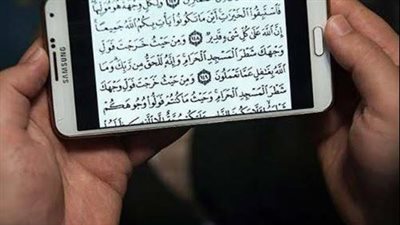 وَلِكُلٍّ وِجْهَةٌ هُوَ مُوَلِّيهَا
فَاسْتَبِقُوا الْخَيْرَاتِ أَيْنَ مَا تَكُونُوا يَأْتِ بِكُمُ اللَّهُ جَمِيعًا
إِنَّ اللَّهَ عَلَىٰ كُلِّ شَيْءٍ قَدِيرٌ ١٤٨ وَمِنْ حَيْثُ خَرَجْتَ فَوَلِّ
وَجْهَكَ شَطْرَ الْمَسْجِدِ الْحَرَامِ وَإِنَّهُ لَلْحَقُّ مِن رَّبِّكَ وَمَا
اللَّهُ بِغَافِلٍ عَمَّا تَعْمَلُونَ ١٤٩ وَمِنْ حَيْثُ خَرَجْتَ فَوَلِّ وَجْهَكَ
شَطْرَ الْمَسْجِدِ الْحَرَامِ وَحَيْثُ مَا كُنتُمْ فَوَلُّوا وُجُوهَكُمْ
SAMSUNG